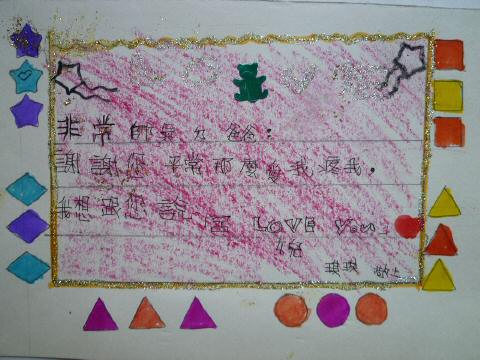 非常帥氣ㄉ爸爸：
謝謝您 平常那麼愛我疼我。
我想跟您說 I LOVE You
敬上